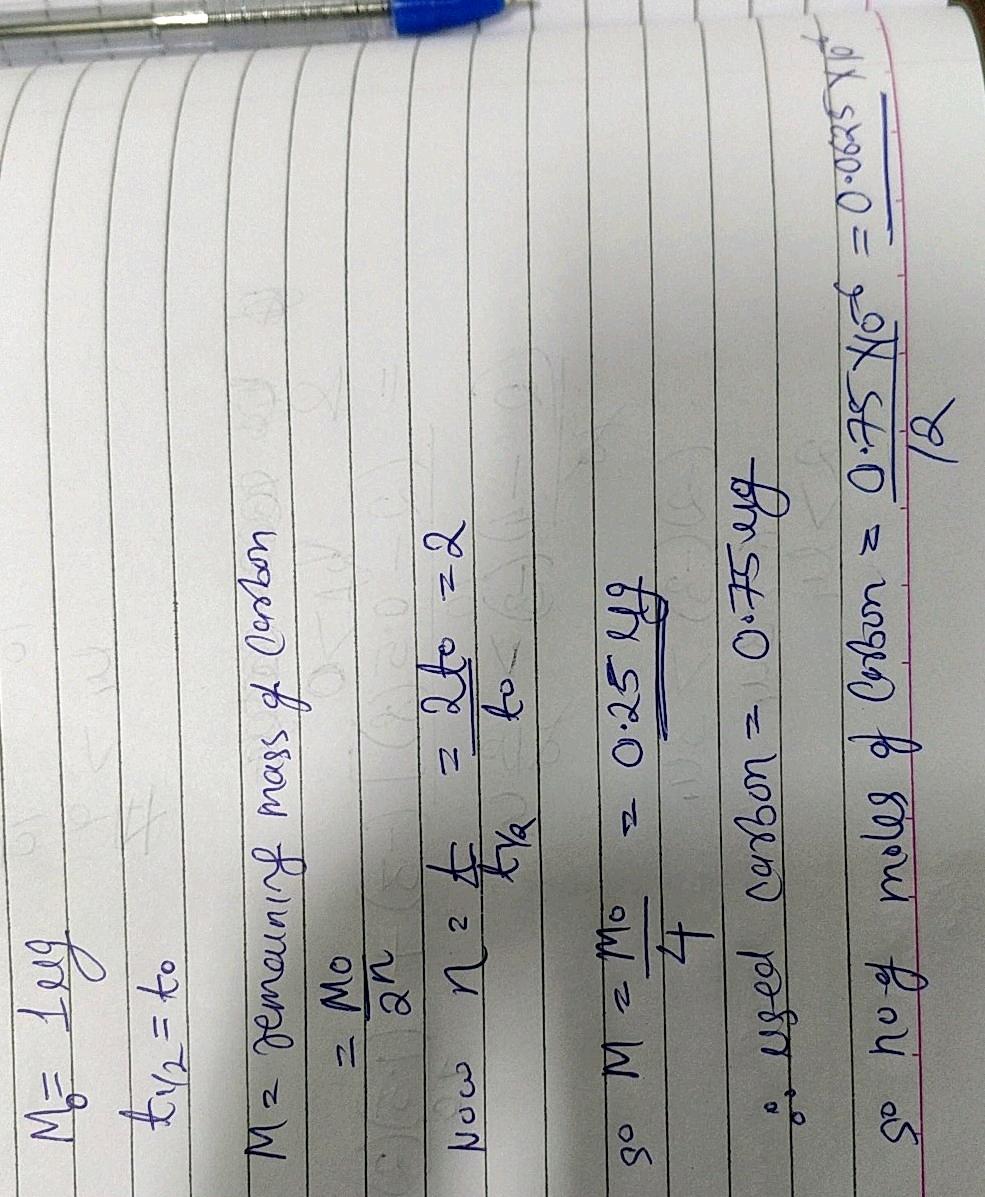 M₀ = 1 μg
t1/2 = to
M = remaining mass of Carbon
= Mo / 2^n
Now n = t / t1/2 = 2to / to = 2
so M = Mo / 4 = 0.25 μg
∴ used carbon = 0.75 μg
so no of moles of Carbon = 0.75 × 10^-6 / 12 = 0.0625 × 10^-6